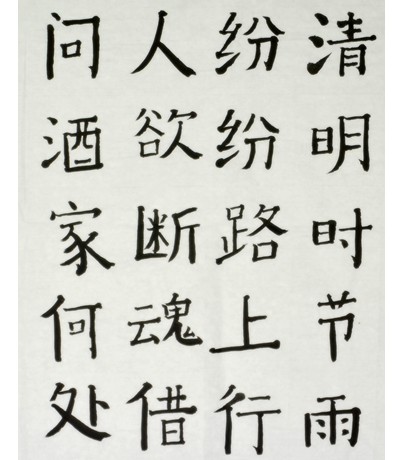 清明时节雨
纷纷路上行
人欲断魂借
问酒家何处